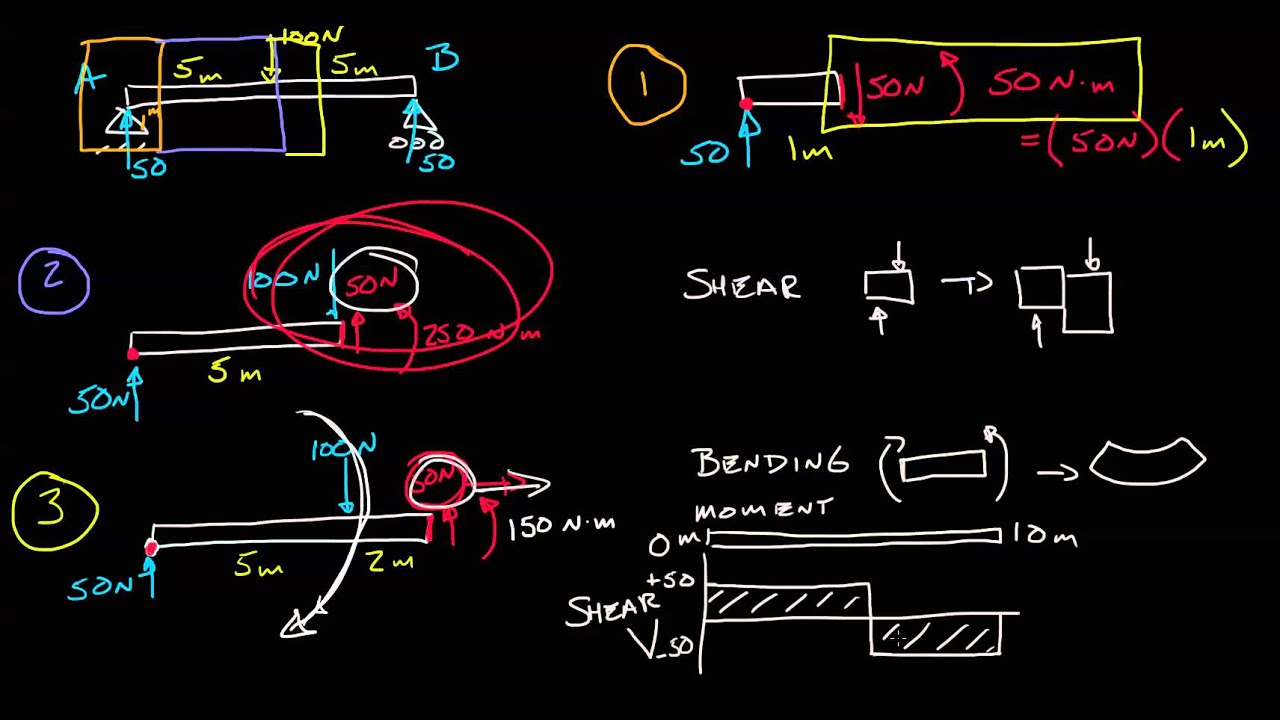 100N
A
5m
5m
B
1m
50
50
1
50N
50N·m
50
1m
=(50N)(1m)
2
100N
50N
250 N·m
5m
50N
SHEAR
3
100N
50N
150 N·m
5m
2m
50N
BENDING
MOMENT
0m
10m
+50
SHEAR
V
-50